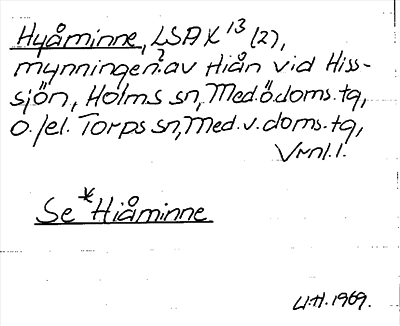 Hyåminne, LSA K 13 (2),
mynningen? av Hiån vid Hiss-
sjön, Holms sn, Med.ö.doms.tg,
o./el. Torps sn, Med.v.doms.tg,
Vrnl.l.
Se *Hiåminne
U.H. 1969.